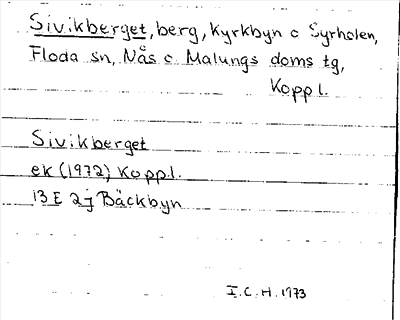 Sivikberget, berg, Kyrkbyn o Syrholen,
Floda sn, Nås o. Malungs doms tg,
Koppl.
Sivikberget
ek (1972) Koppl.
13 E 2j Bäckbyn
I.C.H. 1973